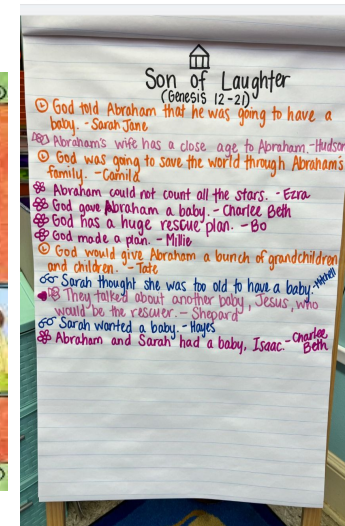 Son of Laughter
(Genesis 12-21)
God told Abraham that he was going to have a
baby. - Sarah Jane
Abraham's wife has a close age to Abraham. - Hudson
God was going to save the world through Abraham's
family. - Camila
Abraham could not count all the stars. - Ezra
God gave Abraham a baby. - Charlee Beth
God has a huge rescue plan. - Bo
God made a plan. - Millie
God would give Abraham a bunch of grandchildren
and children. - Tate
Sarah thought she was too old to have a baby. - Mitchell
They talked about another baby, Jesus, who
would be the rescuer. - Shepard
Sarah wanted a baby. - Hayes
Abraham and Sarah had a baby, Isaac. - Charlee
Beth